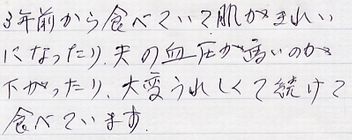 3年前から食べていて肌がきれい
になったり、夫の血圧が高いのが
下がったり、大変うれしくて続けて
食べています。